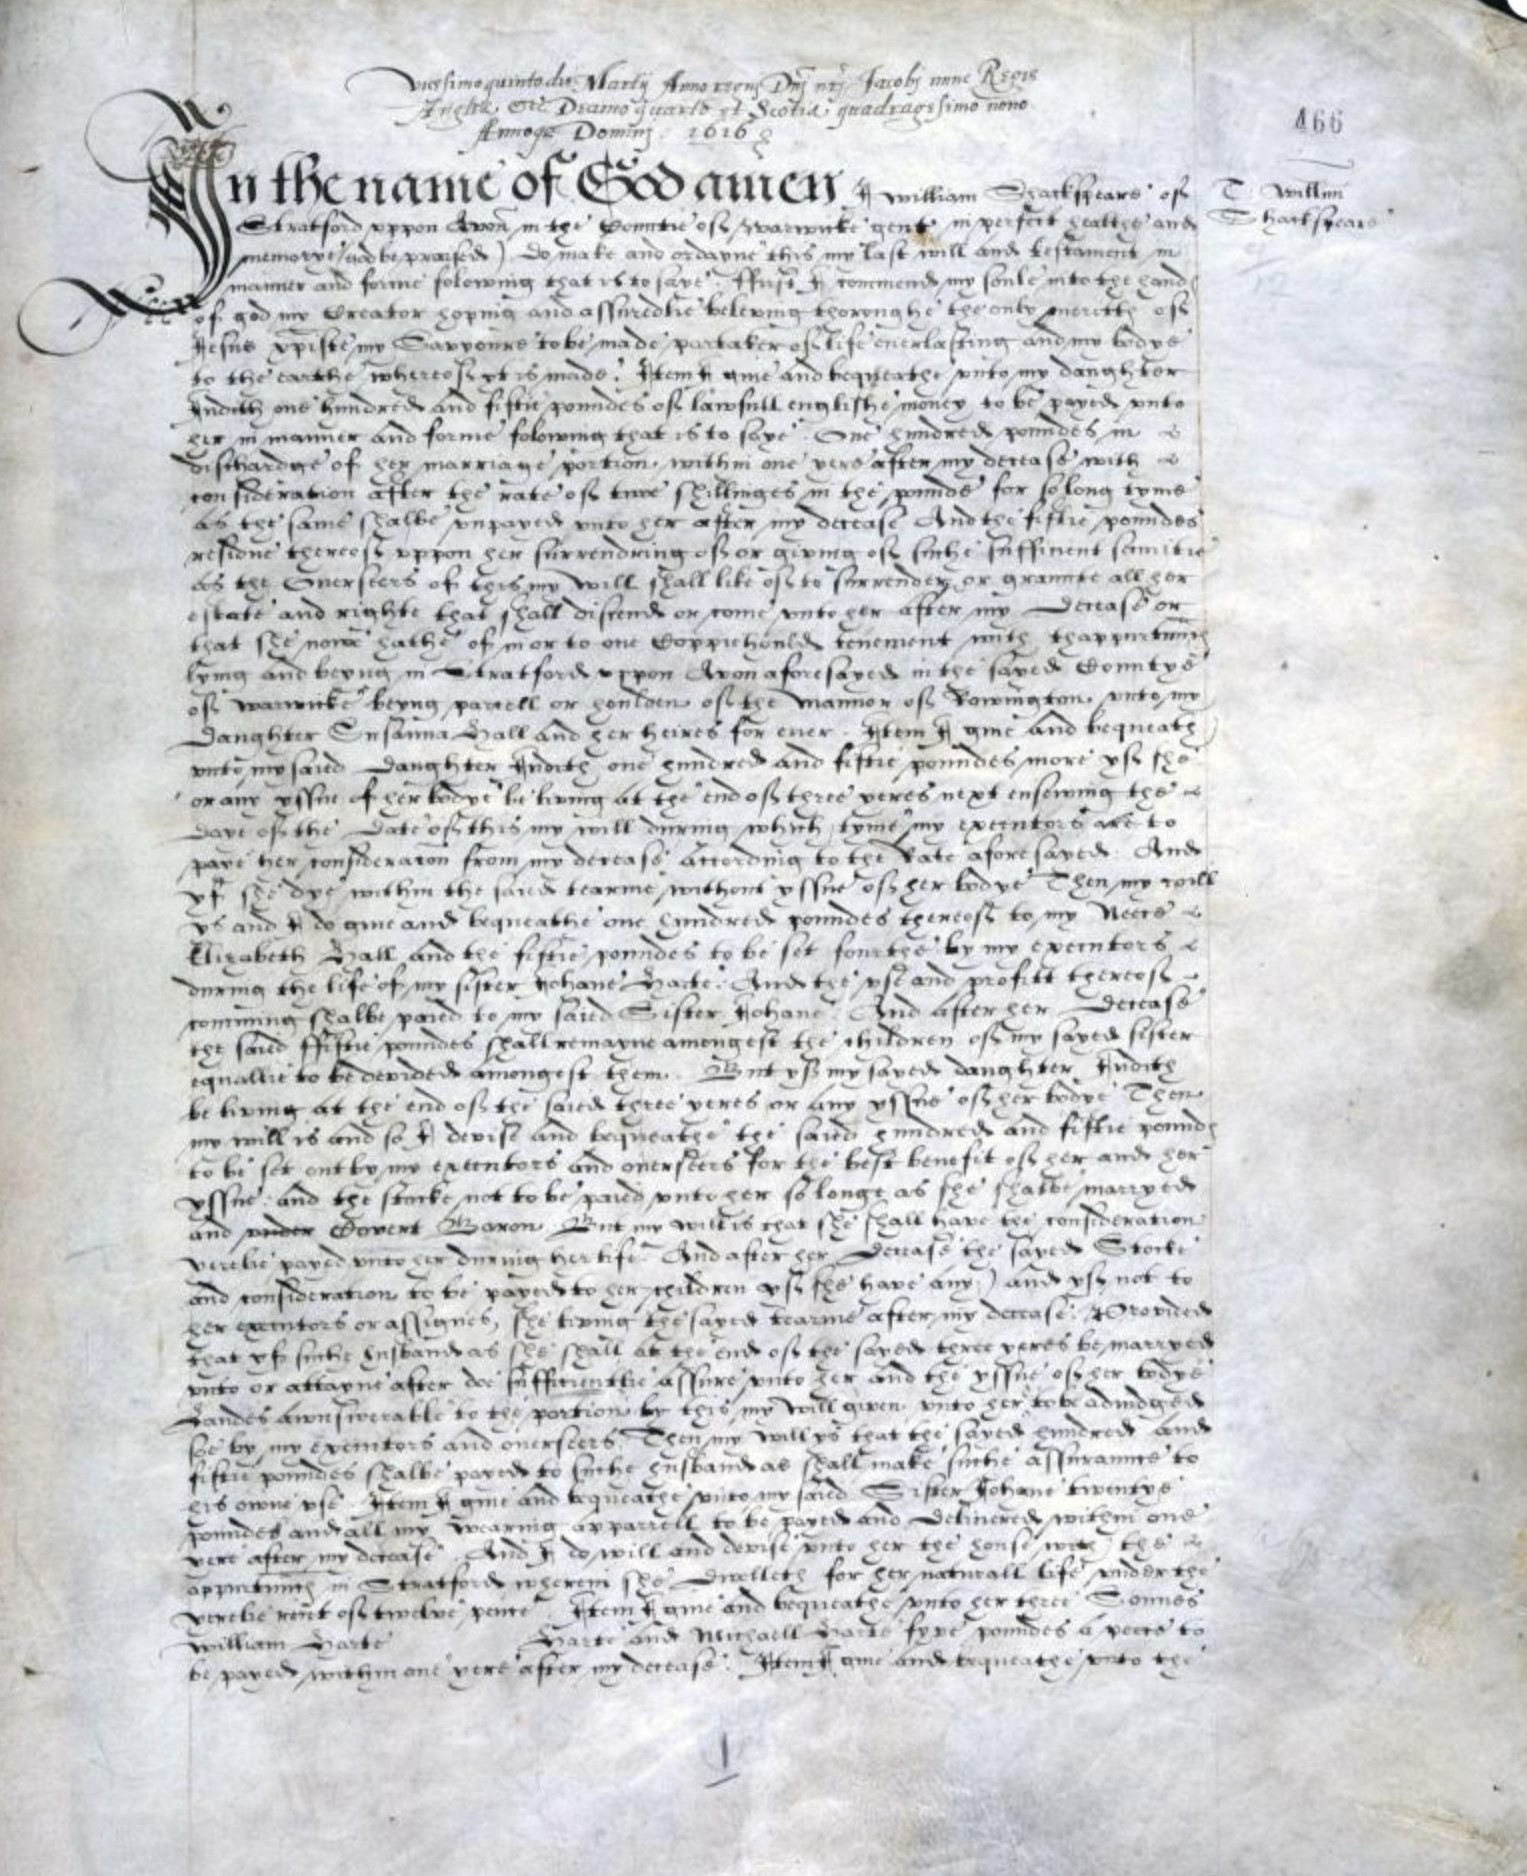 Vicesimo quinto die Martij Anno regni Dni nri Jacobi nunc Regis
Angliæ &c Decimo quarto et Scotiæ quadragesimo nono
Annoqe Domini 1616
466
In the name of God amen I William Shackspeare of
T Willim
Shackspeare
Stratford vppon Avon in the Countie of Warwicke gent in perfect healthe and
memorye (god be praysed) do make and ordayne this my last will and testament in
manner and forme folowing that is to saye. ffirst I commend my soule into the hand
of god my Creator hoping and assuredlie beleving thoroughe the only meritts of
Jesus xpiste my Savyoure to be made partaker of life everlasting and my bodye
to the earthe whereof yt is made. Item I give and bequeathe vnto my daughter
Judith one hundred and fiftie poundes of lawfull englishe money to be payed vnto
her in manner and forme folowing that is to saye. One hundred poundes in
dischardge of her marriage portion within one yere after my decease with
consideration after the rate of twoe shillinges in the pounde for so long tyme
as the same shalbe vnpayed vnto her after my decease And the fiftie poundes
residue thereof vppon her surrendring of or giving of suche sufficient securitie
as the Overseers of this my will shall like of to surrender or graunte all her
estate and righte that shall discend or come vnto her after my decease or
that she nowe hathe of in or to one Coppiehould tenement with thappurtennc
lying and beyng in Stratford vppon Avon aforesayed in the sayed Countye
of Warwicke beyng parcell or houlden of the Mannor of Rowington vnto my
daughter Susanna Hall and her heires for ever. Item I give and bequeath
vnto my saied daughter Judith one hundred and fiftie poundes more yf she
or any yssue of her bodye be living at the end of three yeres next ensewing the
daye of the date of this my will during which tyme my executors are to
paye her consideracon from my decease according to the Rate aforesayed. And
yf she dye within the saied tearme without yssue of her bodye Then my will
ys and I do give and bequeathe one hundred poundes thereof to my Neece
Elizabeth Hall and the fiftie poundes to be set fourthe by my executors
during the life of my sister Johane Harte. And the vse and profitt thereof
comming shalbe paied to my saied Sister Johane. And after her decease
the saied ffiftie poundes shall remayne amongest the children of my sayed sister
equallie to be devided amongest them. But yf my sayed daughter Judith
be living at the end of the saied three yeres or any yssue of her bodye Then
my will is and so I devise and bequeathe the saied hundred and fiftie pound
to be set out by my executors and overseers for the best benefit of her and her
yssue. and the stocke not to be paied vnto her so longe as she shalbe marryed
and vnder Covert Baron. But my will is that she shall have the consideration
yerelie payed vnto her during her life. And after her decease the sayed Stocke
and consideration to be payed to her children yf she have any) and yf not to
her executors or assignes, she living the sayed tearme after my decease. Provided
that yf suche husband as she shall at the end of the sayed three yeres be marryed
vnto or attayne after doe sufficientlie assure vnto her and the yssue of her bodye
Landes awnswerable to the portion by this my will given vnto her to be adiudged
so by my executors and overseers. Then my will ys that the sayed hundred and
fiftie poundes shalbe payed to suche husband as shall make suche assuraunce to
his owne vse. Item I give and bequeathe vnto my saied Sister Johane twentye
poundes and all my wearing apparrell to be payed and delivered within one
yere after my decease. And I do will and devise vnto her the house with the
appurtennc in Stratford wherein she dwelleth for her naturall life vnder the
yerelie rent of twelve pence. Item I give and bequeathe vnto her three Sonnes
William Harte Harte and Michaell Harte fyve poundes a peece to
be payed within one yere after my decease. Item I give and bequeathe vnto the
1